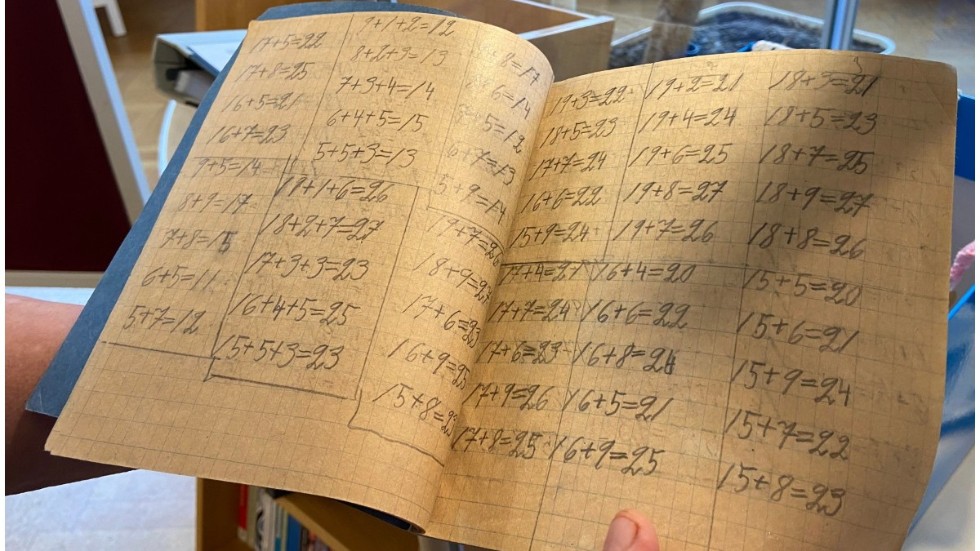 17+5=22
17+8=25
16+5=21
16+7=23
9+5=14
8+9=17
7+8=15
6+5=11
5+7=12
9+1+2=12
8+2+3=13
7+3+4=14
6+4+5=15
5+5+3=13
19+1+6=26
18+2+7=27
17+3+3=23
16+4+5=25
15+5+3=23
+8=17
+6=14
+5=12
6+7=13
5+9=14
19+7=26
18+9=27
17+6=23
16+9=25
15+8=23
19+3=22
18+5=23
17+7=24
16+6=22
15+9=24
17+4=21
17+7=24
17+6=23
17+9=26
17+8=25
19+2=21
19+4=24
19+6=25
19+8=27
19+7=26
16+4=20
16+6=22
16+8=24
16+5=21
16+9=25
18+3=21
18+5=23
18+7=25
18+9=27
18+8=26
15+5=20
15+6=21
15+9=24
15+7=22
15+8=23